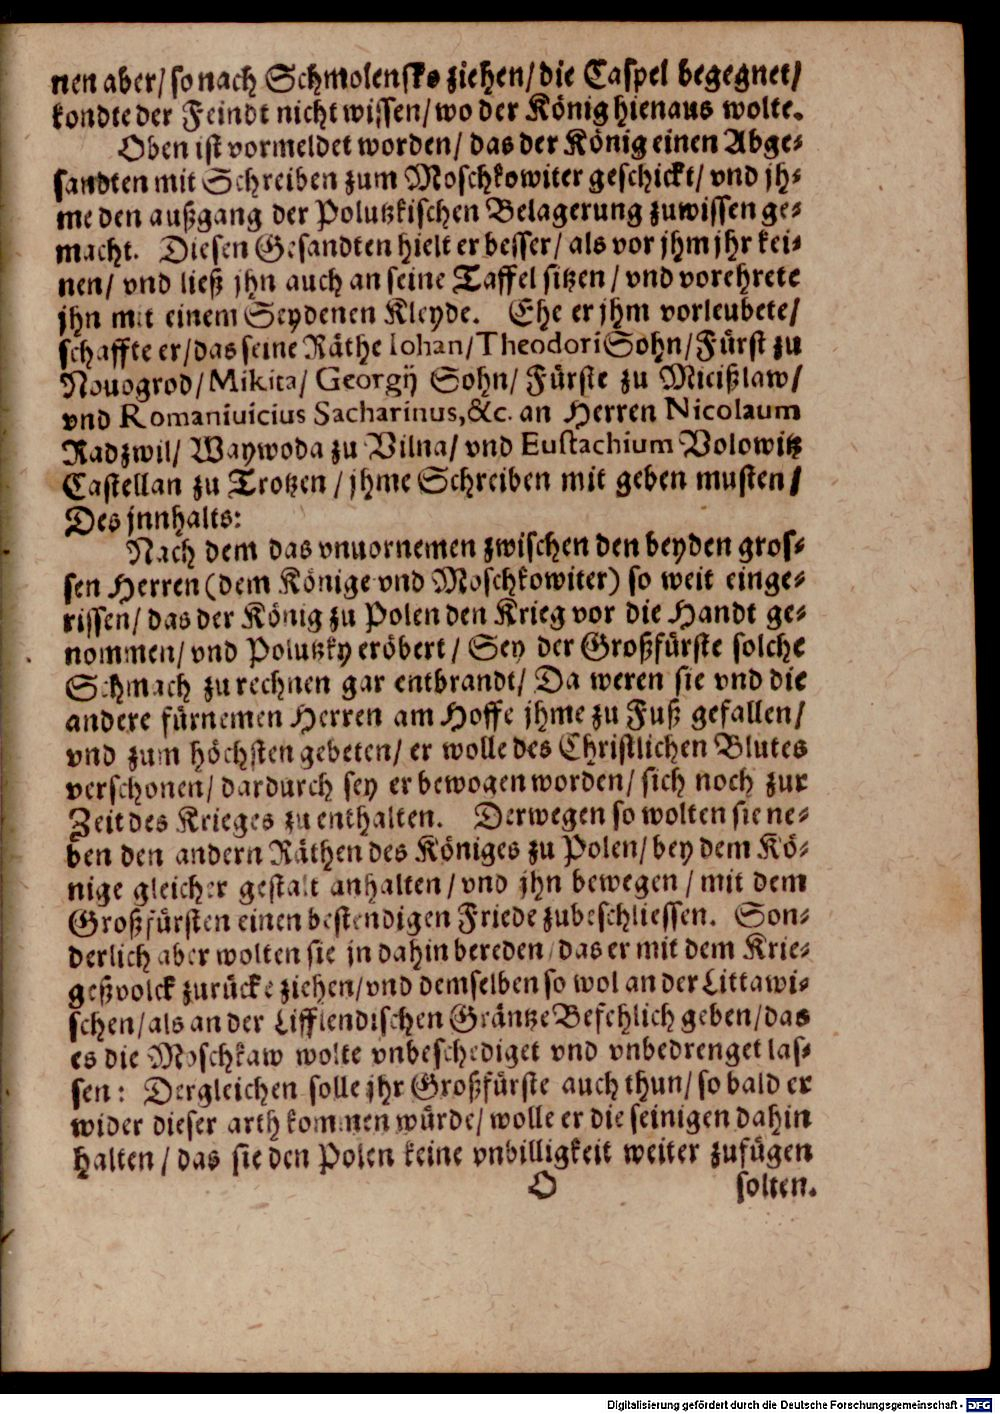 nen aber/ so nach Schmolensko ziehen/ die Caspel begegnet/
kondte der Feindt nicht wissen/ wo der König hienaus wolte.
Oben ist vormeldet worden/ das der König einen Abge-
sandten mit Schreiben zum Moschkowiter geschickt/ vnd jh-
me den außgang der Polutzkischen Belagerung zuwissen ge-
macht. Diesen Gesandten hielt er besser/ als vor jhm jhr kei-
nen/ vnd ließ jhn auch an seine Taffel sitzen/ vnd vorehrete
jhn mit einem Seydenen Kleyde. Ehe er jhm vorleubete/
schaffte er/ das seine Räthe Iohan/ Theodori Sohn/ Fürst zu
Nouogrod/ Mikita/ Georgij Sohn/ Fürste zu Micißlaw/
vnd Romaniuicius Sacharinus, &c. an Herren Nicolaum
Radzwil/ Waywoda zu Vilna/ vnd Eustachium Volowitz
Castellan zu Trotzen/ jhme Schreiben mit geben musten/
Des jnnhalts:
Nach dem das vnuornemen zwischen den beyden gros-
sen Herren (dem Könige vnd Moschkowiter) so weit einge-
rissen/ das der König zu Polen den Krieg vor die Handt ge-
nommen/ vnd Polutzky eröbert/ Sey der Großfürste solche
Schmach zu rechnen gar entbrandt/ Da weren sie vnd die
andere fürnemen Herren am Hoffe jhme zu Fuß gefallen/
vnd zum höchsten gebeten/ er wolle des Christlichen Blutes
verschonen/ dardurch sey er bewogen worden/ sich noch zur
Zeit des Krieges zu enthalten. Derwegen so wolten sie ne-
ben den andern Räthen des Königes zu Polen/ bey dem Kö-
nige gleicher gestalt anhalten/ vnd jhn bewegen/ mit dem
Großfürsten einen bestendigen Friede zubeschliessen. Son-
derlich aber wolten sie jn dahin bereden/ das er mit dem Krie-
geßvolck zurücke ziehen/ vnd demselben so wol an der Littawi-
schen/ als an der Lifflendischen Gräntze Befehlich geben/ das
es die Moschkaw wolte vnbeschediget vnd vnbedrenget las-
sen: Dergleichen solle jhr Großfürste auch thun/ so bald er
wider dieser arth kommen würde/ wolle er die seinigen dahin
halten/ das sie den Polen keine vnbilligkeit weiter zufügen
O solten.
Digitalisierung gefördert durch die Deutsche Forschungsgemeinschaft - DFG